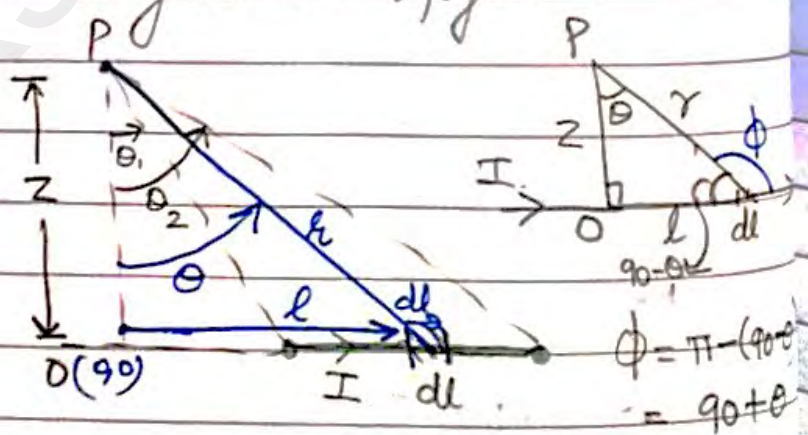 P
Z
θ₁
θ₂
θ
r
l
dl
O(90)
I
dl
P
Z
θ
r
ϕ
I
O
l
dl
90-θ
ϕ = π-(90-θ
= 90+θ